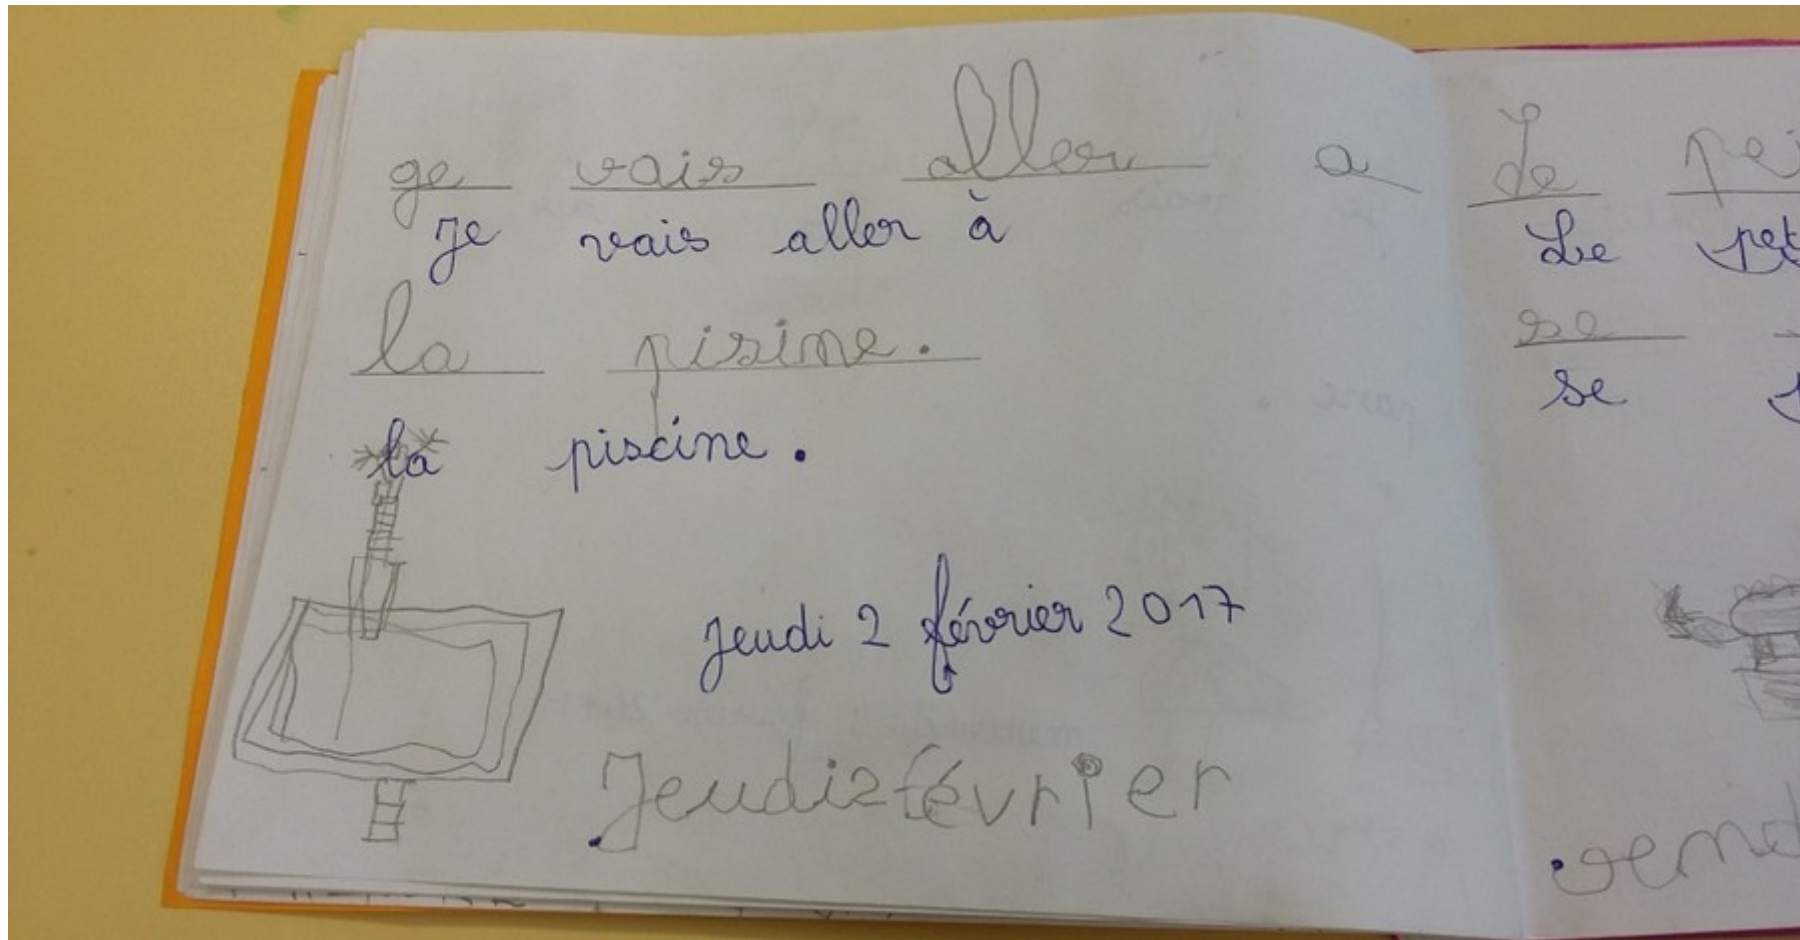 ge vais aller a
Je vais aller à
la pisine.
la piscine.
jeudi 2 février 2017
Jeudi2février
Le
Le
se
se